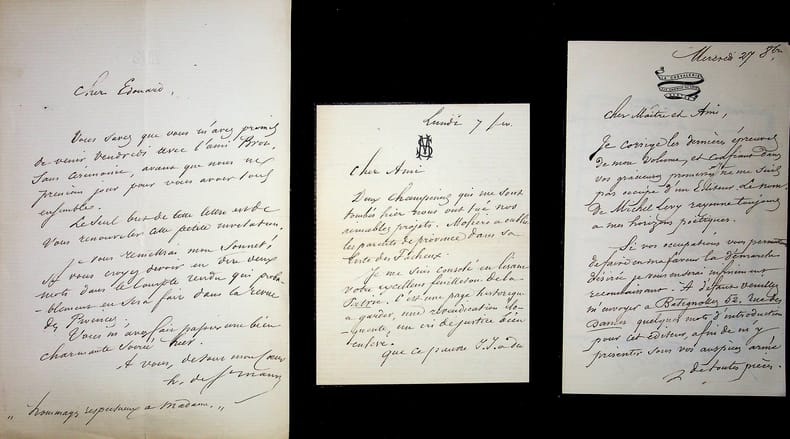 Cher Edouard,
Vous savez que vous m'avez promis
de venir Vendredi avec l'ami Brou,
Sans Cérémonie, avant que nous ne
jour pour vous avoir tous
ensemble.
Le seul but de cette lettre est de
Vous renouveler cette petite invitation.
Je vous remettrai mon Sonnet
si vous croyez devoir en dire deux
mots dans le Compte rendu qui proba-
-blement en sera fait dans la revue
de
Vous m'avez fait passer une bien
charmante Soirée hier.
A vous, de tout mon Coeur
h. de St
"hommages respectueux a Madame."
Lundi 7
Cher Ami
Deux Champenois qui me sont
tombés hier nous ont tué nos
aimables projets. Molière a oublié
les parents de province dans sa
liste des Fâcheux.
Je me suis consolé en lisant
votre excellent feuilleton de la
Patrie. C'est une page historique
a garder, une revendication élo-
quente, un cri de justice bien
enlevé.
Que ce pauvre J. J. a du
Mercredi 27 8bre
LA CHEVALERIE
Cher Maître et Ami,
Je corrige les dernières épreuves
de mon volume, et confiant dans
vos gracieuses promesses ne me suis
pas occupé d'un Editeur. Le nom
de Michel Levy rayonne toujours
a mes horizons poétiques.
Si vos occupations vous permettent
de faire en ma faveur la démarche
désirée je vous serai infiniment
reconnaissant. A défaut veuillez
m'envoyer a Batignolles 52, rue des
Dames quelques mots d'introduction
pour cet éditeur, afin de m'y
présenter sous vos auspices armé
de toutes pièces.